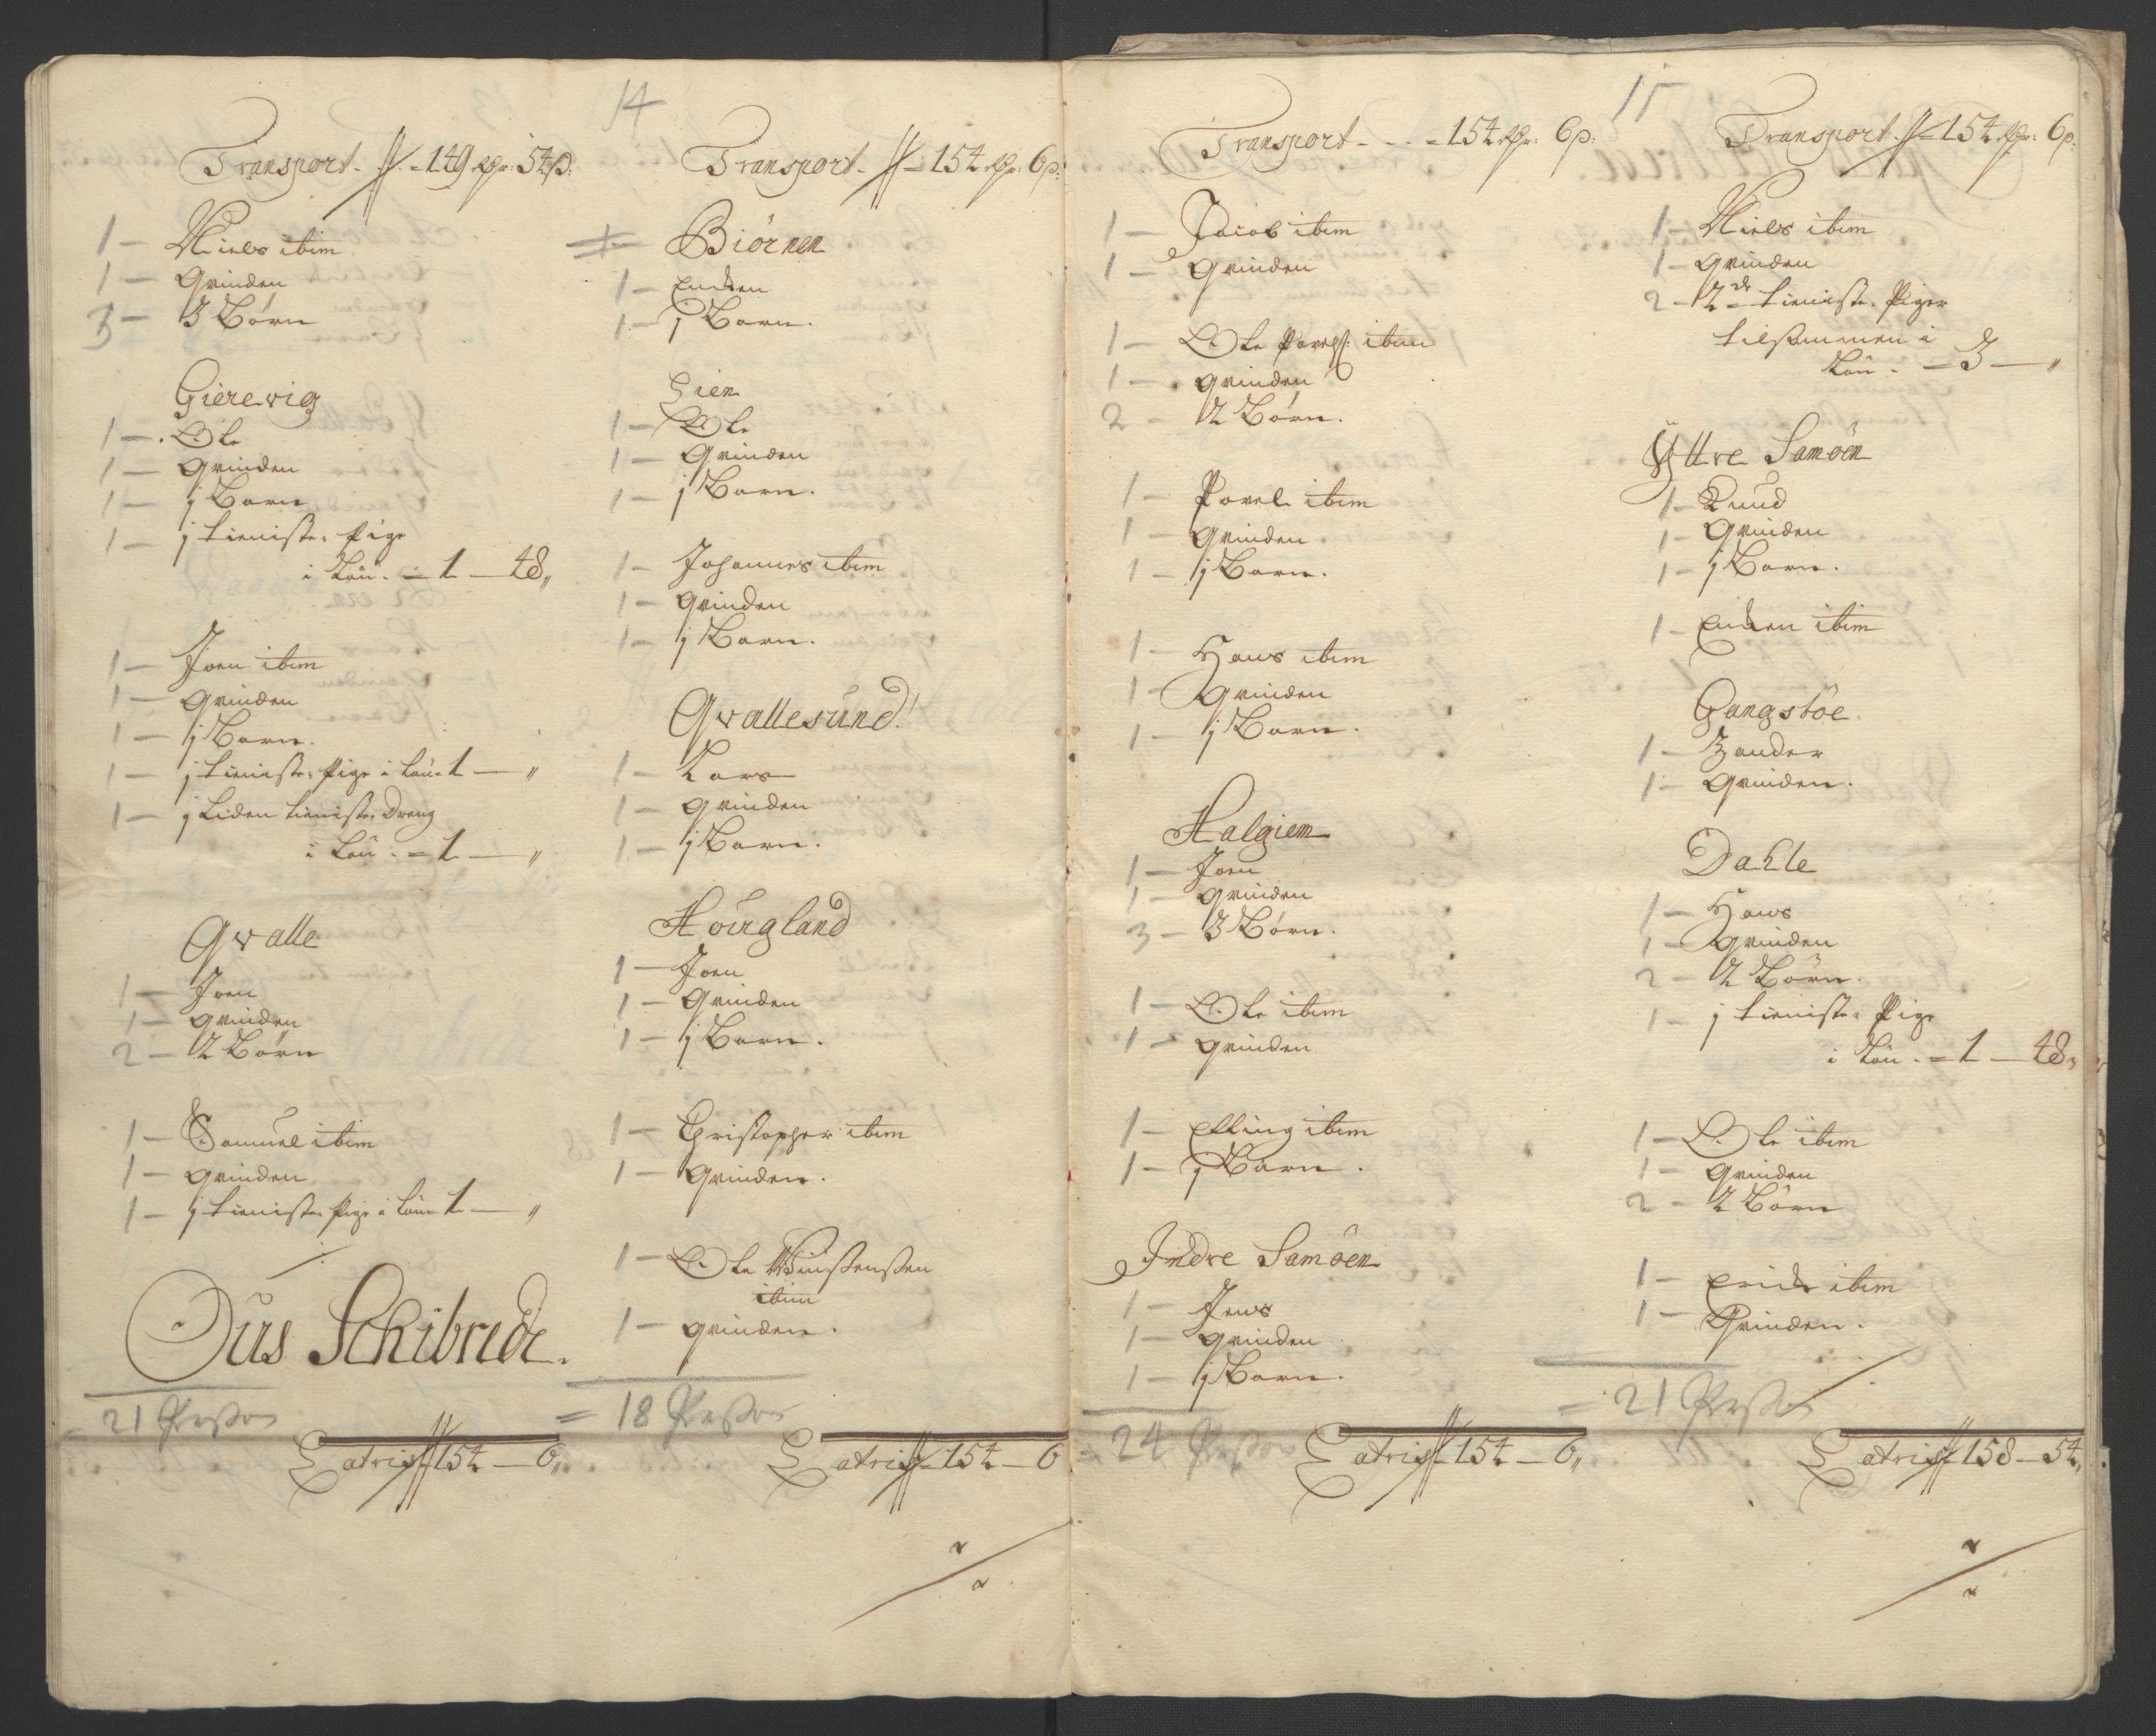 14
Transport - 149 Rdr: 54 β:
1 — Niels ibim
1 — Qvinden
3 — 3 Börn
Gierevig
1 — Ole
1 — Qvinden
1 — j Barn
1 — j tieniste Pige
i Lön - 1 — 48 „
1 — Joen ibim
1 — Qvinden
1 — j Barn.
1 — j tieniste Pige i Lön 1 — „
1 — j Liden tieniste Dreng
i Lön - 1 — „
Qvalle
1 — Joen
1 — Qvinden
2 — 2 Börn
1 — Samuel ibim
1 — Qvinden
1 — j tieniste Pige i Lön 1 — „
Öus Schibrede.
= 21 Person
Latris 154 — 6 „
Transport - 154 Rdr: 6 β:
Biörnen
1 — Encken
1 — j Barn.
Lien
1 — Ole
1 — Qvinden
1 — j Barn.
1 — Johannes ibim
1 — Qvinden
1 — j Barn.
Qvallesund
1 — Lars
1 — Qvinden
1 — j Barn.
Hougland
1 — Joen
1 — Qvinden
1 — j Barn.
1 — Christopher ibim
1 — Qvinden.
1 — Ole
ibim
1 — qvinden.
= 18 Person
Latris 154 — 6
15
Transport - - - 154 Rdr: 6 β:
1 — Jacob ibim
1 — Qvinden
1 — Ole Povels: ibim
1 — qvinden
2 — 2 Börn.
1 — Povel ibim
1 — Qvinden
1 — j Barn.
1 — Hans ibim
1 — Qvinden
1 — j Barn.
Halgiem
1 — Joen
1 — qvinden
3 — 3 Börn.
1 — Ole ibim
1 — qvinden
1 — Elling ibim
1 — j Barn.
Indre Samöen
1 — Jens
1 — qvinden
1 — j Barn.
= 24 Person
Latris 154 — 6 „
Transport - 154 Rdr: 6 β:
1 — Niels ibim
1 — Qvinden
2 — 2de tieniste Piger
tilsammen i
Lön - 3 — „
Yttre Samöen
1 — Knud
1 — Qvinden
1 — j Barn.
1 — Encken ibim
Gangstöe
1 — Zander
1 — Qvinden.
Dahle
1 — Hans
1 — qvinden
2 — 2 Börn.
1 — j tieniste Pige
i Lön - 1 — 48 „
1 — Ole ibim
1 — Qvinden
2 — 2 Börn
1 — Erick ibim
1 — Qvinden.
= 21 Persson
Latris 158 — 54 „